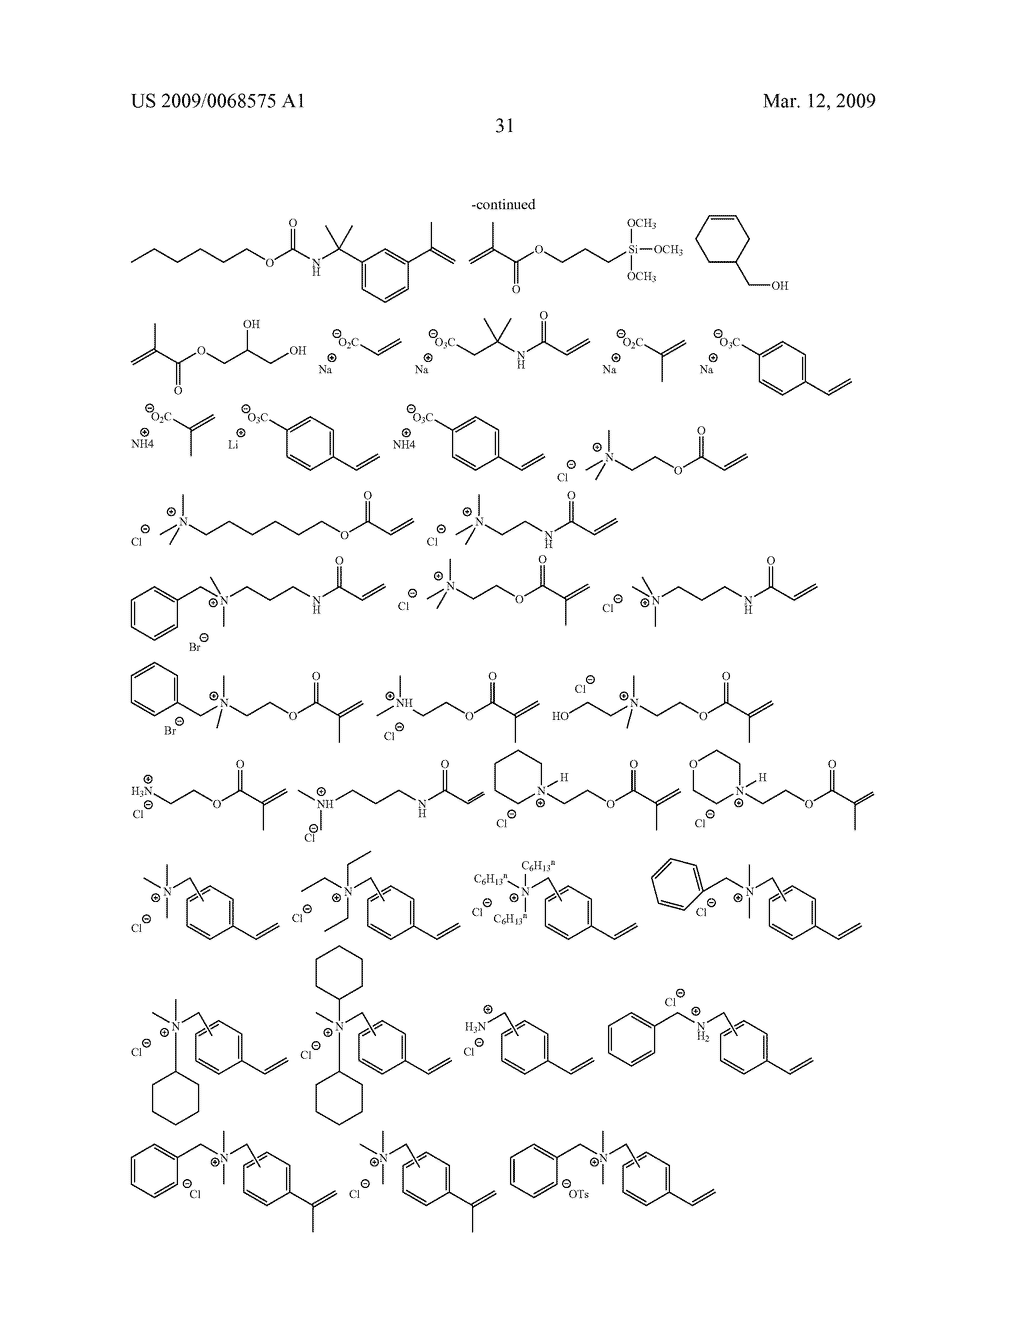 US 2009/0068575 A1
Mar. 12, 2009
31
-continued
O
O
N
H
O
O
Si
OCH3
OCH3
OCH3
OH
O
O
OH
OH
⊖O2C
Na⊕
⊖O3C
Na⊕
N
H
O
⊖O2C
Na⊕
⊖O3C
Na⊕
⊖O2C
NH4⊕
⊖O3C
Li⊕
⊖O3C
NH4⊕
N⊕
Cl⊖
O
O
N⊕
Cl⊖
O
O
N⊕
Cl⊖
N
H
O
N⊕
Br⊖
N
H
O
N⊕
Cl⊖
O
O
N⊕
Cl⊖
N
H
O
N⊕
Br⊖
O
O
NH⊕
Cl⊖
O
O
Cl⊖
HO
N⊕
O
O
H3N⊕
Cl⊖
O
O
NH⊕
Cl⊖
N
H
O
N⊕
H
Cl⊖
O
O
O
N⊕
H
Cl⊖
O
O
N⊕
Cl⊖
N⊕
Cl⊖
C6H13n
C6H13n
C6H13n
N⊕
Cl⊖
N⊕
Cl⊖
N⊕
Cl⊖
N⊕
Cl⊖
H3N⊕
Cl⊖
Cl⊖
N⊕
H2
N⊕
⊖Cl
N⊕
Cl⊖
N⊕
⊖OTs